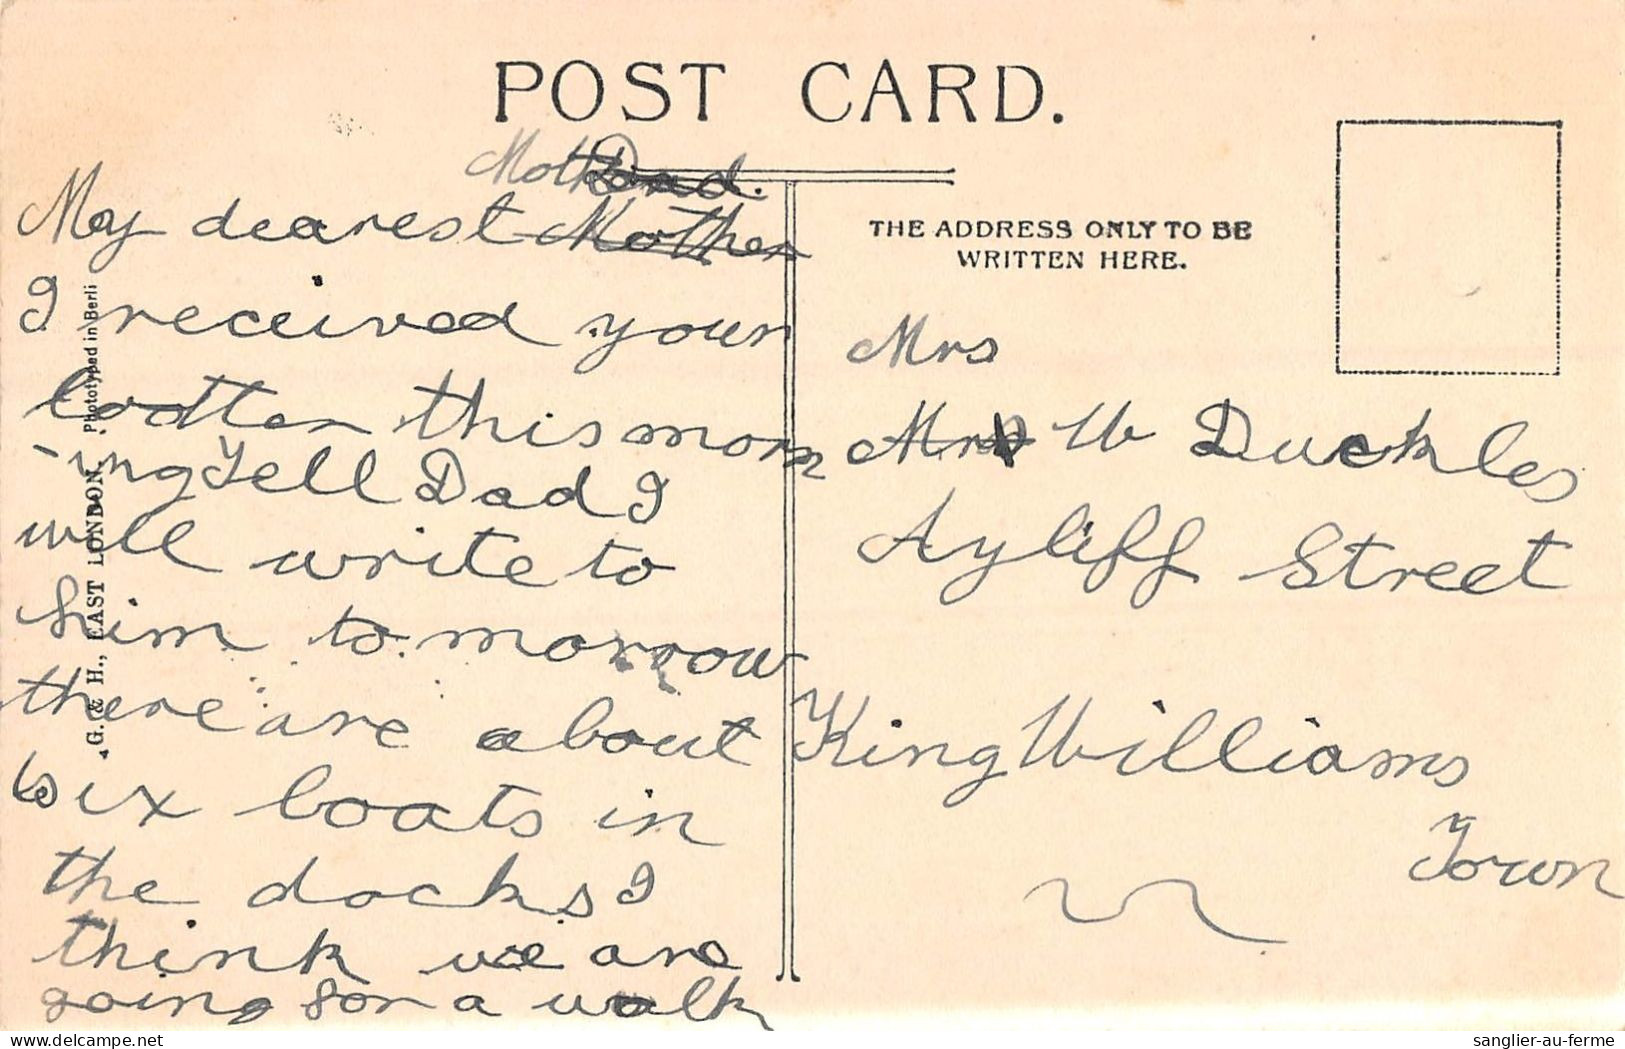 POST CARD.
Mother Dad.
My dearest Mother
I received your
lettter this morn
-ing Tell Dad I
will write to
him to morrow
there are about
six boats in
the docks I
think we are
going for a walk
G. & H., EAST LONDON. Phototyped in Berli
THE ADDRESS ONLY TO BE
WRITTEN HERE.
Mrs
Mrs W Duckles
Ayliff Street
King Williams
Town
delcampe.net
sanglier-au-ferme